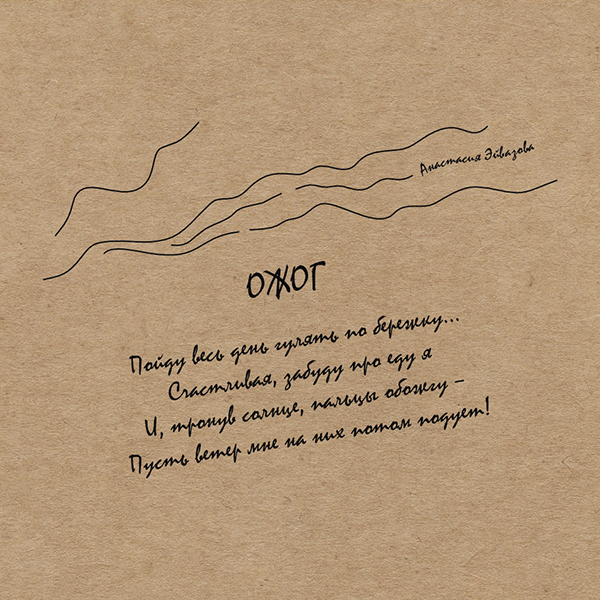 Анастасия Эйвазова
ОЖОГ
Пойду весь день гулять по бережку...
Счастливая, забуду про еду я
И, тронув солнце, пальцы обожгу –
Пусть ветер мне на них потом подует!